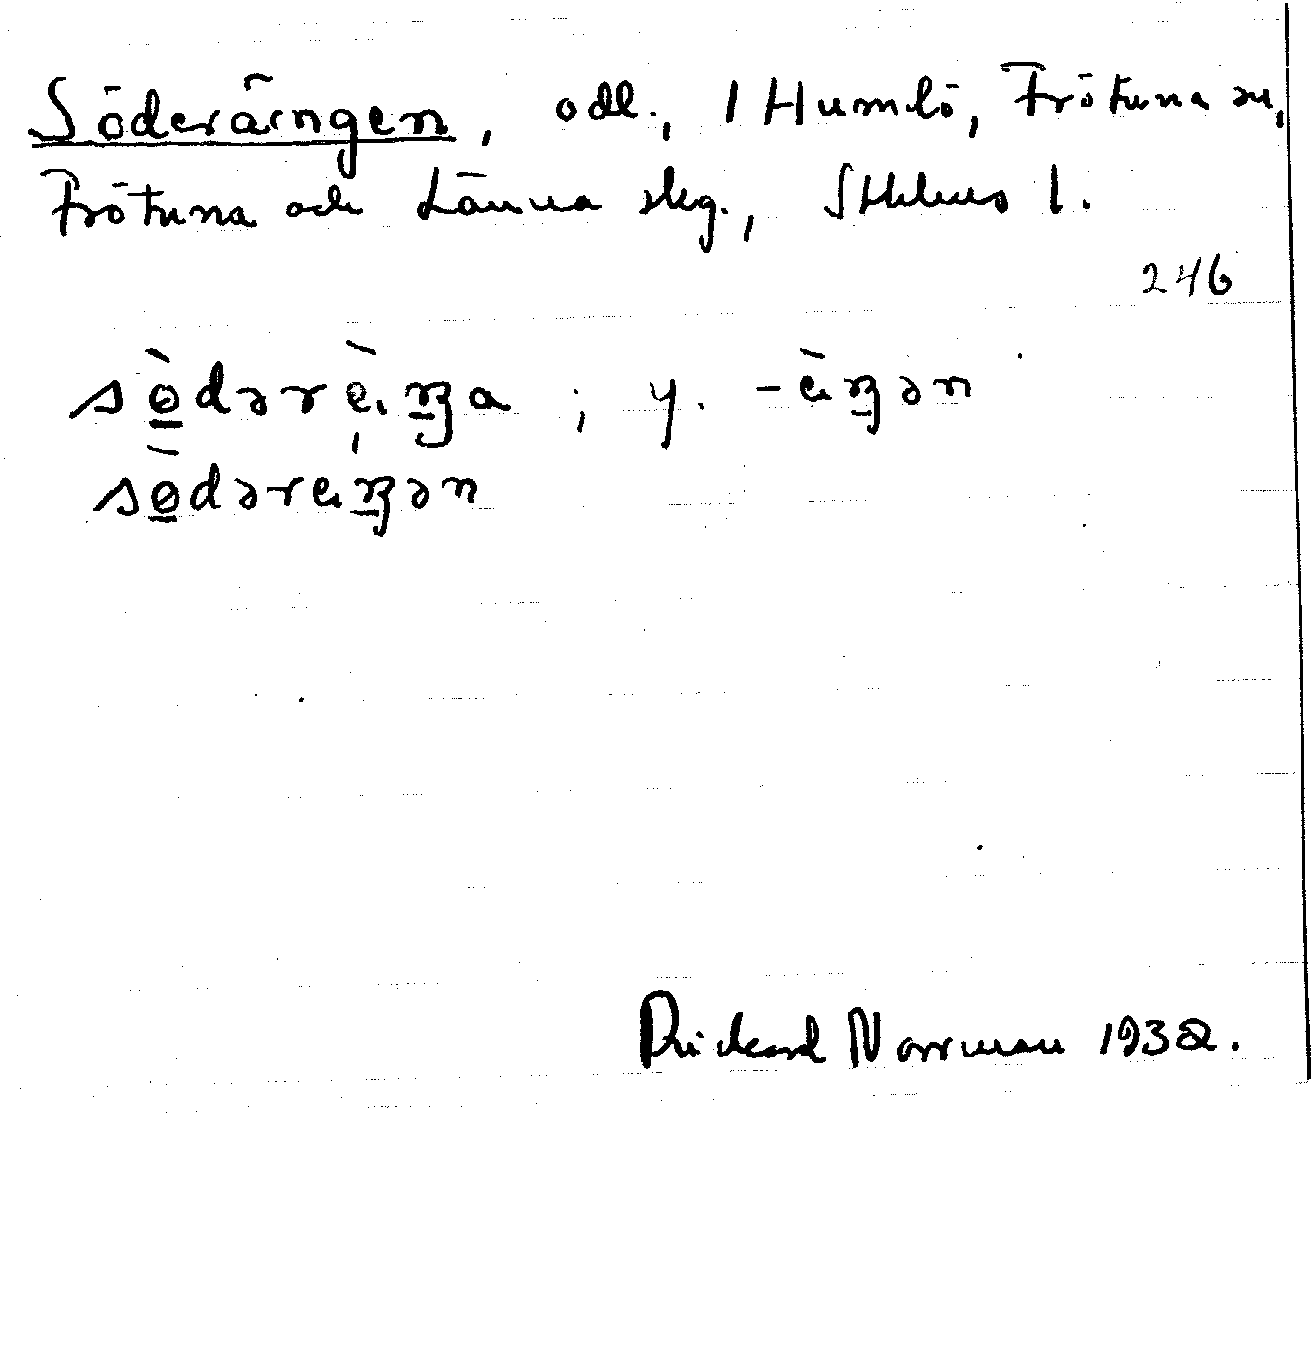 Söderängen, odl., 1 Humlö, Frötuna sn,
Frötuna och Länna skg., Sthlms l.
246
sèdərèŋa ; y. -èŋən
sèdəreŋən
Rickard Norrman 1932.